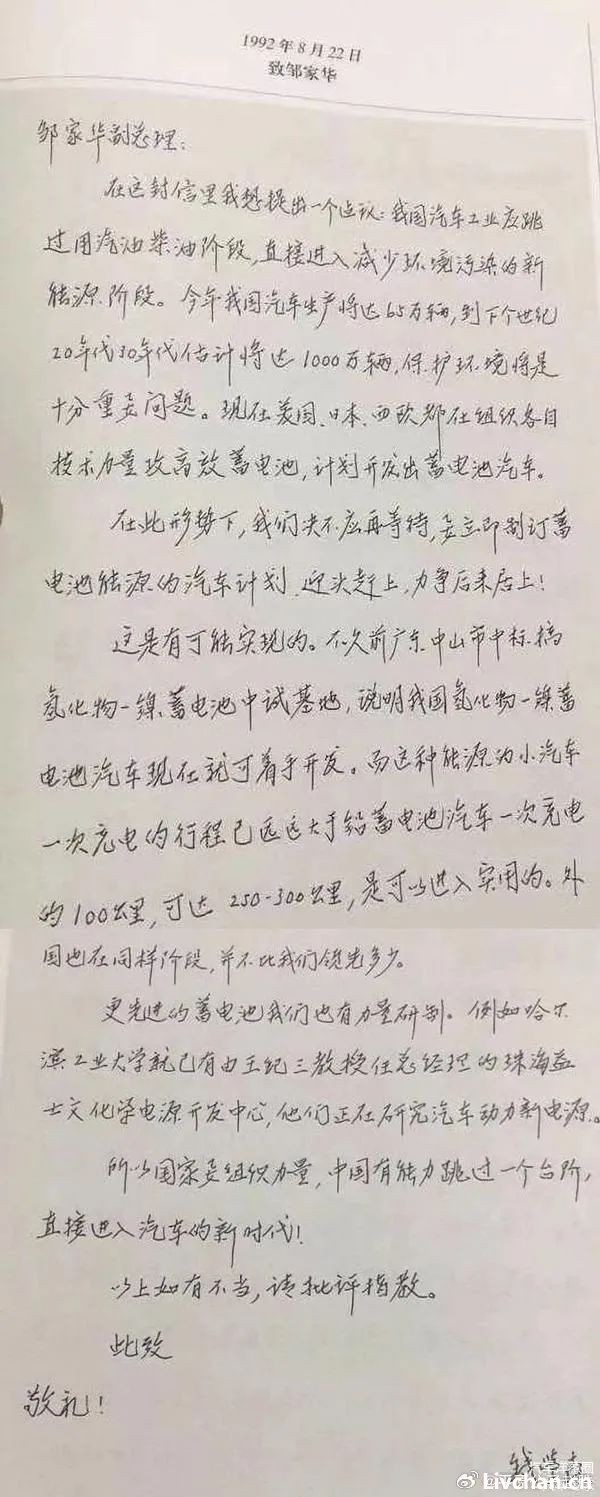 1992年8月22日
致邹家华
邹家华副总理:
在这封信里我想提出一个建议:我国汽车工业应跳
过用汽油柴油阶段,直接进入减少环境污染的新
能源阶段。今年我国汽车生产将达65万辆,到下个世纪
20年代30年代估计将达1000万辆,保护环境将是
十分重要问题。现在美国、日本、西欧都在组织各自
技术力量攻高效蓄电池,计划开发出蓄电池汽车。
在此形势下,我们决不应再等待,要立即制订蓄
电池能源的汽车计划,迎头赶上,力争后来居上!
这是有可能实现的。不久前广东中山市中标搞
氢化物—镍蓄电池中试基地,说明我国氢化物—镍蓄
电池汽车现在就可着手开发。而这种能源为小汽车
一次充电的行程已远远大于铅蓄电池汽车一次充电
的100公里,可达250-300公里,是可以进入实用的。外
国也在同样阶段,并不比我们领先多少。
更先进的蓄电池我们也有力量研制。例如哈尔
滨工业大学就已有由王纪三教授任总经理的珠海益
士文化学电源开发中心,他们正在研究汽车动力新电源。
所以国家要组织力量,中国有能力跳过一个台阶,
直接进入汽车的新时代!
以上如有不当,请批评指教。
此致
敬礼!
钱学森
@Livchan.cn